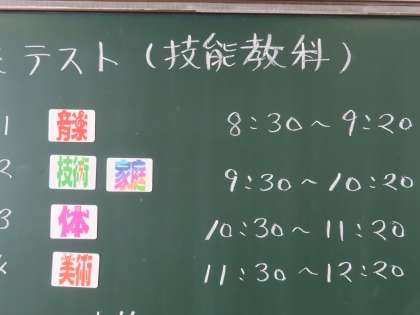 テスト(技能教科)
1 音楽 8:30～9:20
2 技術 家庭 9:30～10:20
3 体 10:30～11:20
4 美術 11:30～12:20